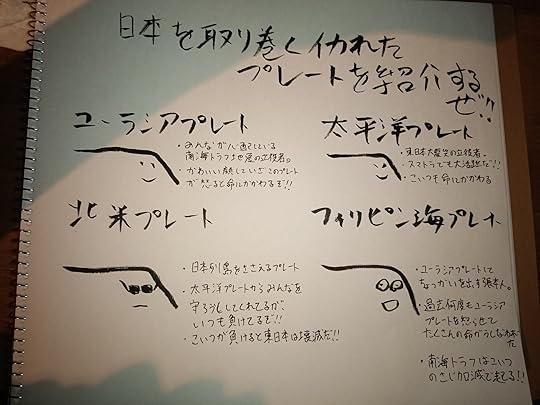 日本を取り巻くイカれた
プレートを紹介する
ぜ!!
ユーラシアプレート
・みんなが心配している
南海トラフ地震の立役者。
・かわいい顔しているがこのプレート
が怒ると命にかかわるぞ!!
太平洋プレート
・東日本大震災の立役者。
・スマトラでも大活躍だ!!
・こいつも命にかかわる
北米プレート
・日本列島をささえるプレート
・太平洋プレートからみんなを
守ろうとしてくれてるが、
いつも負けてるぞ!!
・こいつが負けると東日本は壊滅だ!!
フィリピン海プレート
・ユーラシアプレートに
ちょっかいを出す張本人。
・過去何度もユーラシア
プレートを怒らせて
たくさんの命がうしなわれ
だ
・南海トラフはこいつ
のさじ加減で起てる!!